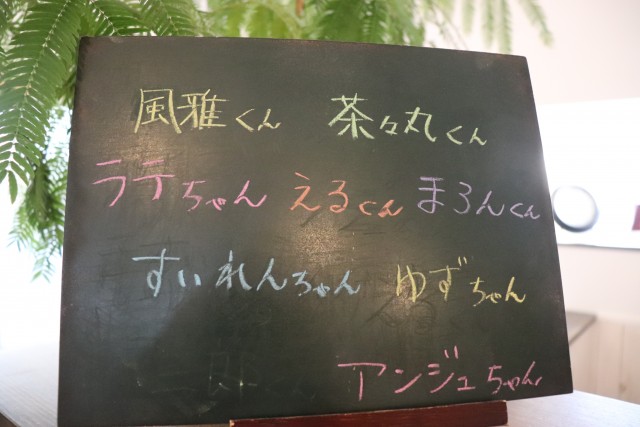 風雅くん 茶々丸くん
ラテちゃん えるくん まろんくん
すいれんちゃん ゆずちゃん
アンジュちゃん